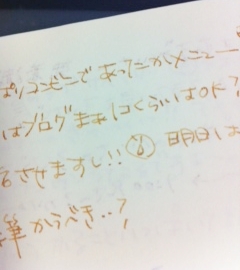 ぱりコンビニであったかメニュー
はブログまあ1コくらいはOK?
させますし!! 明日は
筆からべき..?